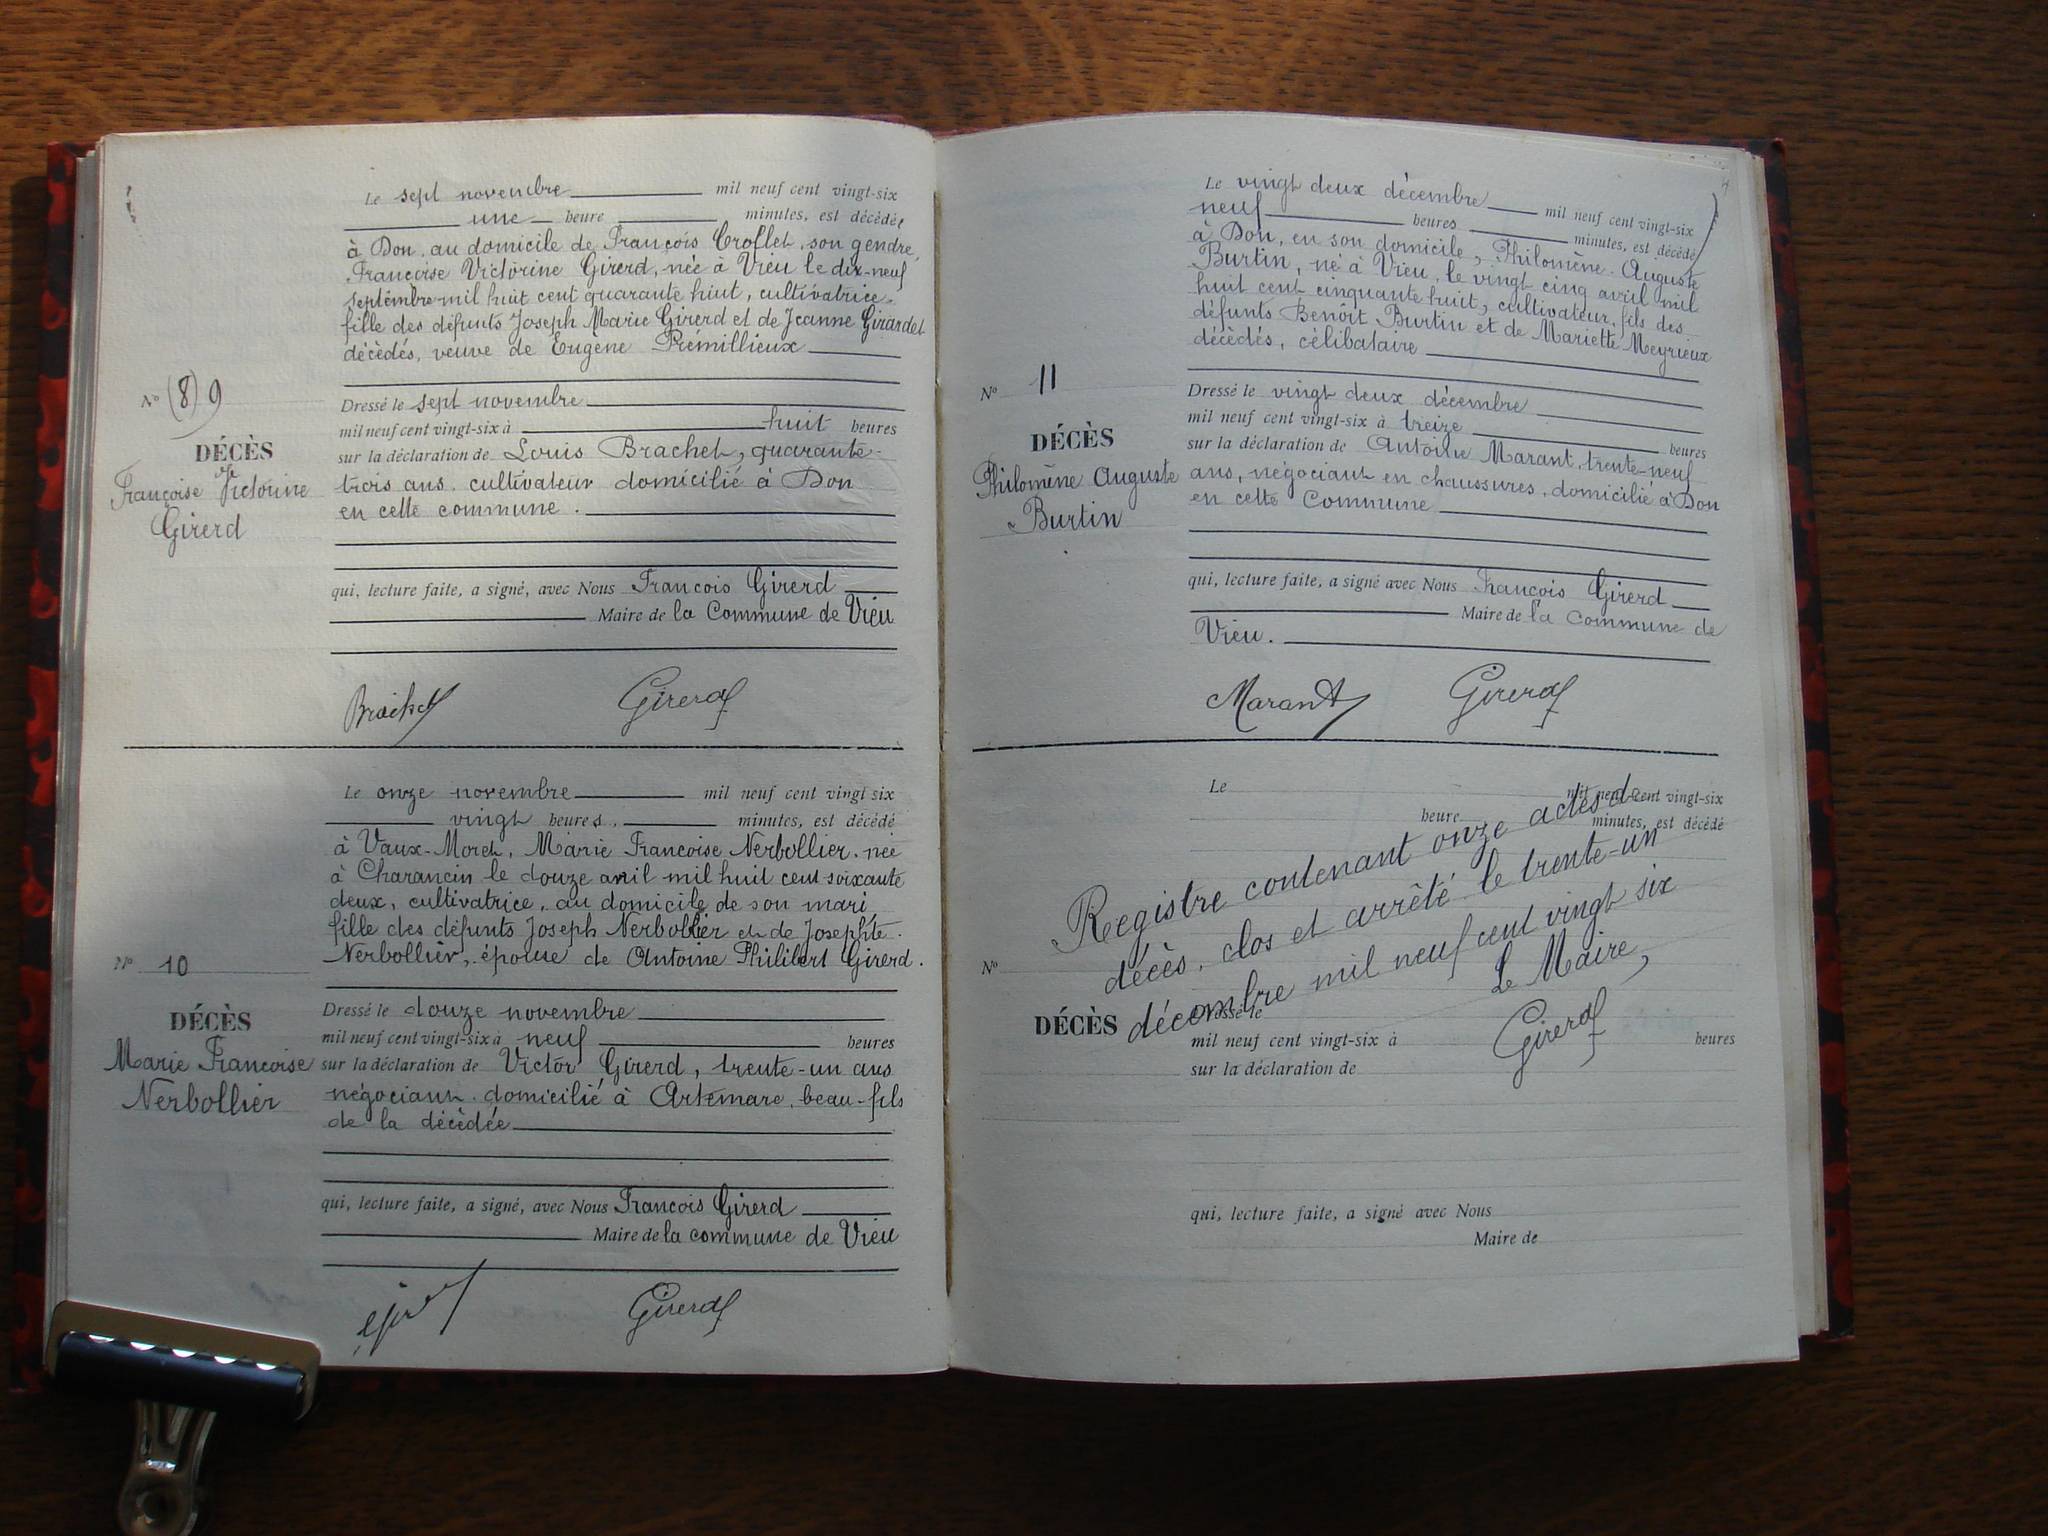 Le sept novembre mil neuf cent vingt-six
une heure minutes, est décédée
à Don, au domicile de François Crollet, son gendre,
Françoise Victorine Girerd, née à Vieu le dix-neuf
septembre mil huit cent quarante huit, cultivatrice,
fille des défunts Joseph Marie Girerd et de Jeanne Girardet
décèdés, veuve de Eugène Prémillieux
Nº (8) 9
DÉCÈS
Françoise Victorine
Girerd
Dressé le sept novembre
mil neuf cent vingt-six à huit heures
sur la déclaration de Louis Brachet, quarante-
trois ans, cultivateur domicilié à Don
en cette commune.
qui, lecture faite, a signé, avec Nous François Girerd
Maire de la Commune de Vieu
Brachet Girerd
Le onze novembre mil neuf cent vingt six
vingt heures, minutes, est décédé
à Vaux-Moret, Marie Francoise Nerbollier, née
à Charancin le douze avril mil huit cent soixante
deux, cultivatrice, au domicile de son mari,
fille des défunts Joseph Nerbollier et de Josephte
Nerbollier, épouse de Antoine Philibert Girerd.
Nº 10
DÉCÈS
Marie Francoise
Nerbollier
Dressé le douze novembre
mil neuf cent vingt-six à neuf heures
sur la déclaration de Victor Girerd, trente-un ans
négociant domicilié à Artemare, beau-fils
de la décèdée
qui, lecture faite, a signé, avec Nous Francois Girerd
Maire de la commune de Vieu
Girerd
Le vingt deux décembre mil neuf cent vingt-six
neuf heures minutes, est décédé
à Don, en son domicile, Philomène Auguste
Burtin, né à Vieu, le vingt cinq avril mil
huit cent cinquante huit, cultivateur, fils des
défunts Benoît Burtin et de Mariette Meyrieux
décèdés, célibataire
Nº 11
DÉCÈS
Philomène Auguste
Burtin
Dressé le vingt deux décembre
mil neuf cent vingt-six à treize heures
sur la déclaration de Antoine Marant, trente-neuf
ans, négociant en chaussures, domicilié à Don
en cette Commune
qui, lecture faite, a signé avec Nous François Girerd
Maire de la Commune de
Vieu.
Marant Girerd
Le mil neuf cent vingt-six
heure minutes, est décédé
Registre contenant onze actes de
décès, clos et arrêté le trente-un
décembre mil neuf cent vingt six
Le Maire,
Girerd
Nº
DÉCÈS
Dressé le
mil neuf cent vingt-six à heures
sur la déclaration de
qui, lecture faite, a signé avec Nous
Maire de